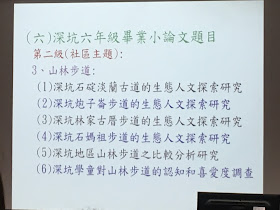 (六)深坑六年級畢業小論文題目
第二級(社區主題):
3、山林步道:
(1)深坑石碇淡蘭古道的生態人文探索研究
(2)深坑炮子崙步道的生態人文探索研究
(3)深坑林家古厝步道的生態人文探索研究
(4)深坑石媽祖步道的生態人文探索研究
(5)深坑地區山林步道之比較分析研究
(6)深坑學童對山林步道的認知和喜愛度調查